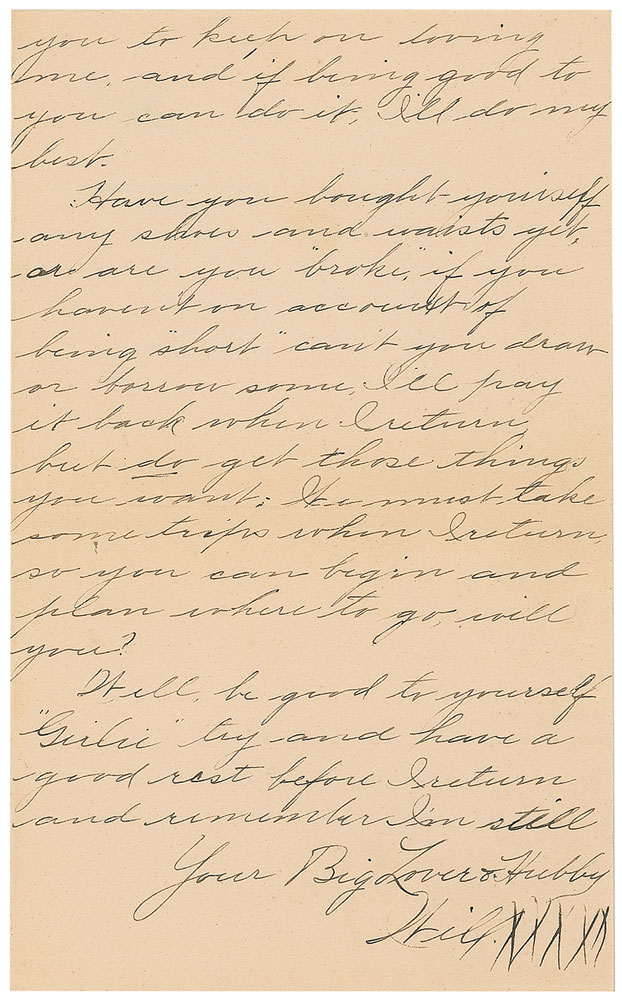 you to keep on loving
me, and if being good to
you can do it, I'll do my
best.
Have you bought yourself
any shoes and waists yet,
or are you "broke," if you
haven't on account of
being "short" can't you draw
or borrow some, I'll pay
it back when I return,
but do get those things
you want; We must take
some trips when I return,
so you can begin and
plan where to go, will
you?
Well, be good to yourself
"Girlie" try and have a
good rest before I return
and remember I'm still
Your Big Lover & Hubby
Will. XXXXX